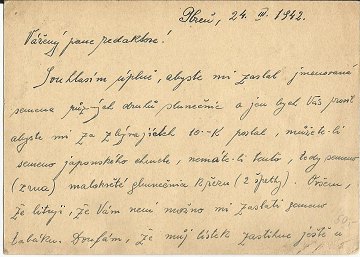 Plzeň, 24. III. 1942.
Vážený pane redaktore!
Souhlasím úplně, abyste mi zaslal jmenovaná
semena různých druhů slunečnic a jen bych Vás prosil
abyste mi za zbývajících 10.-K poslal, můžete-li
semeno japonského, nemáte-li toho, tedy semeno
(zrna) malokvěté slunečnice (2 špetky). Ovšem,
že lituji, že Vám není možno mi zaslati semeno
tabáku. Doufám, že můj lístek zastihne ještě u